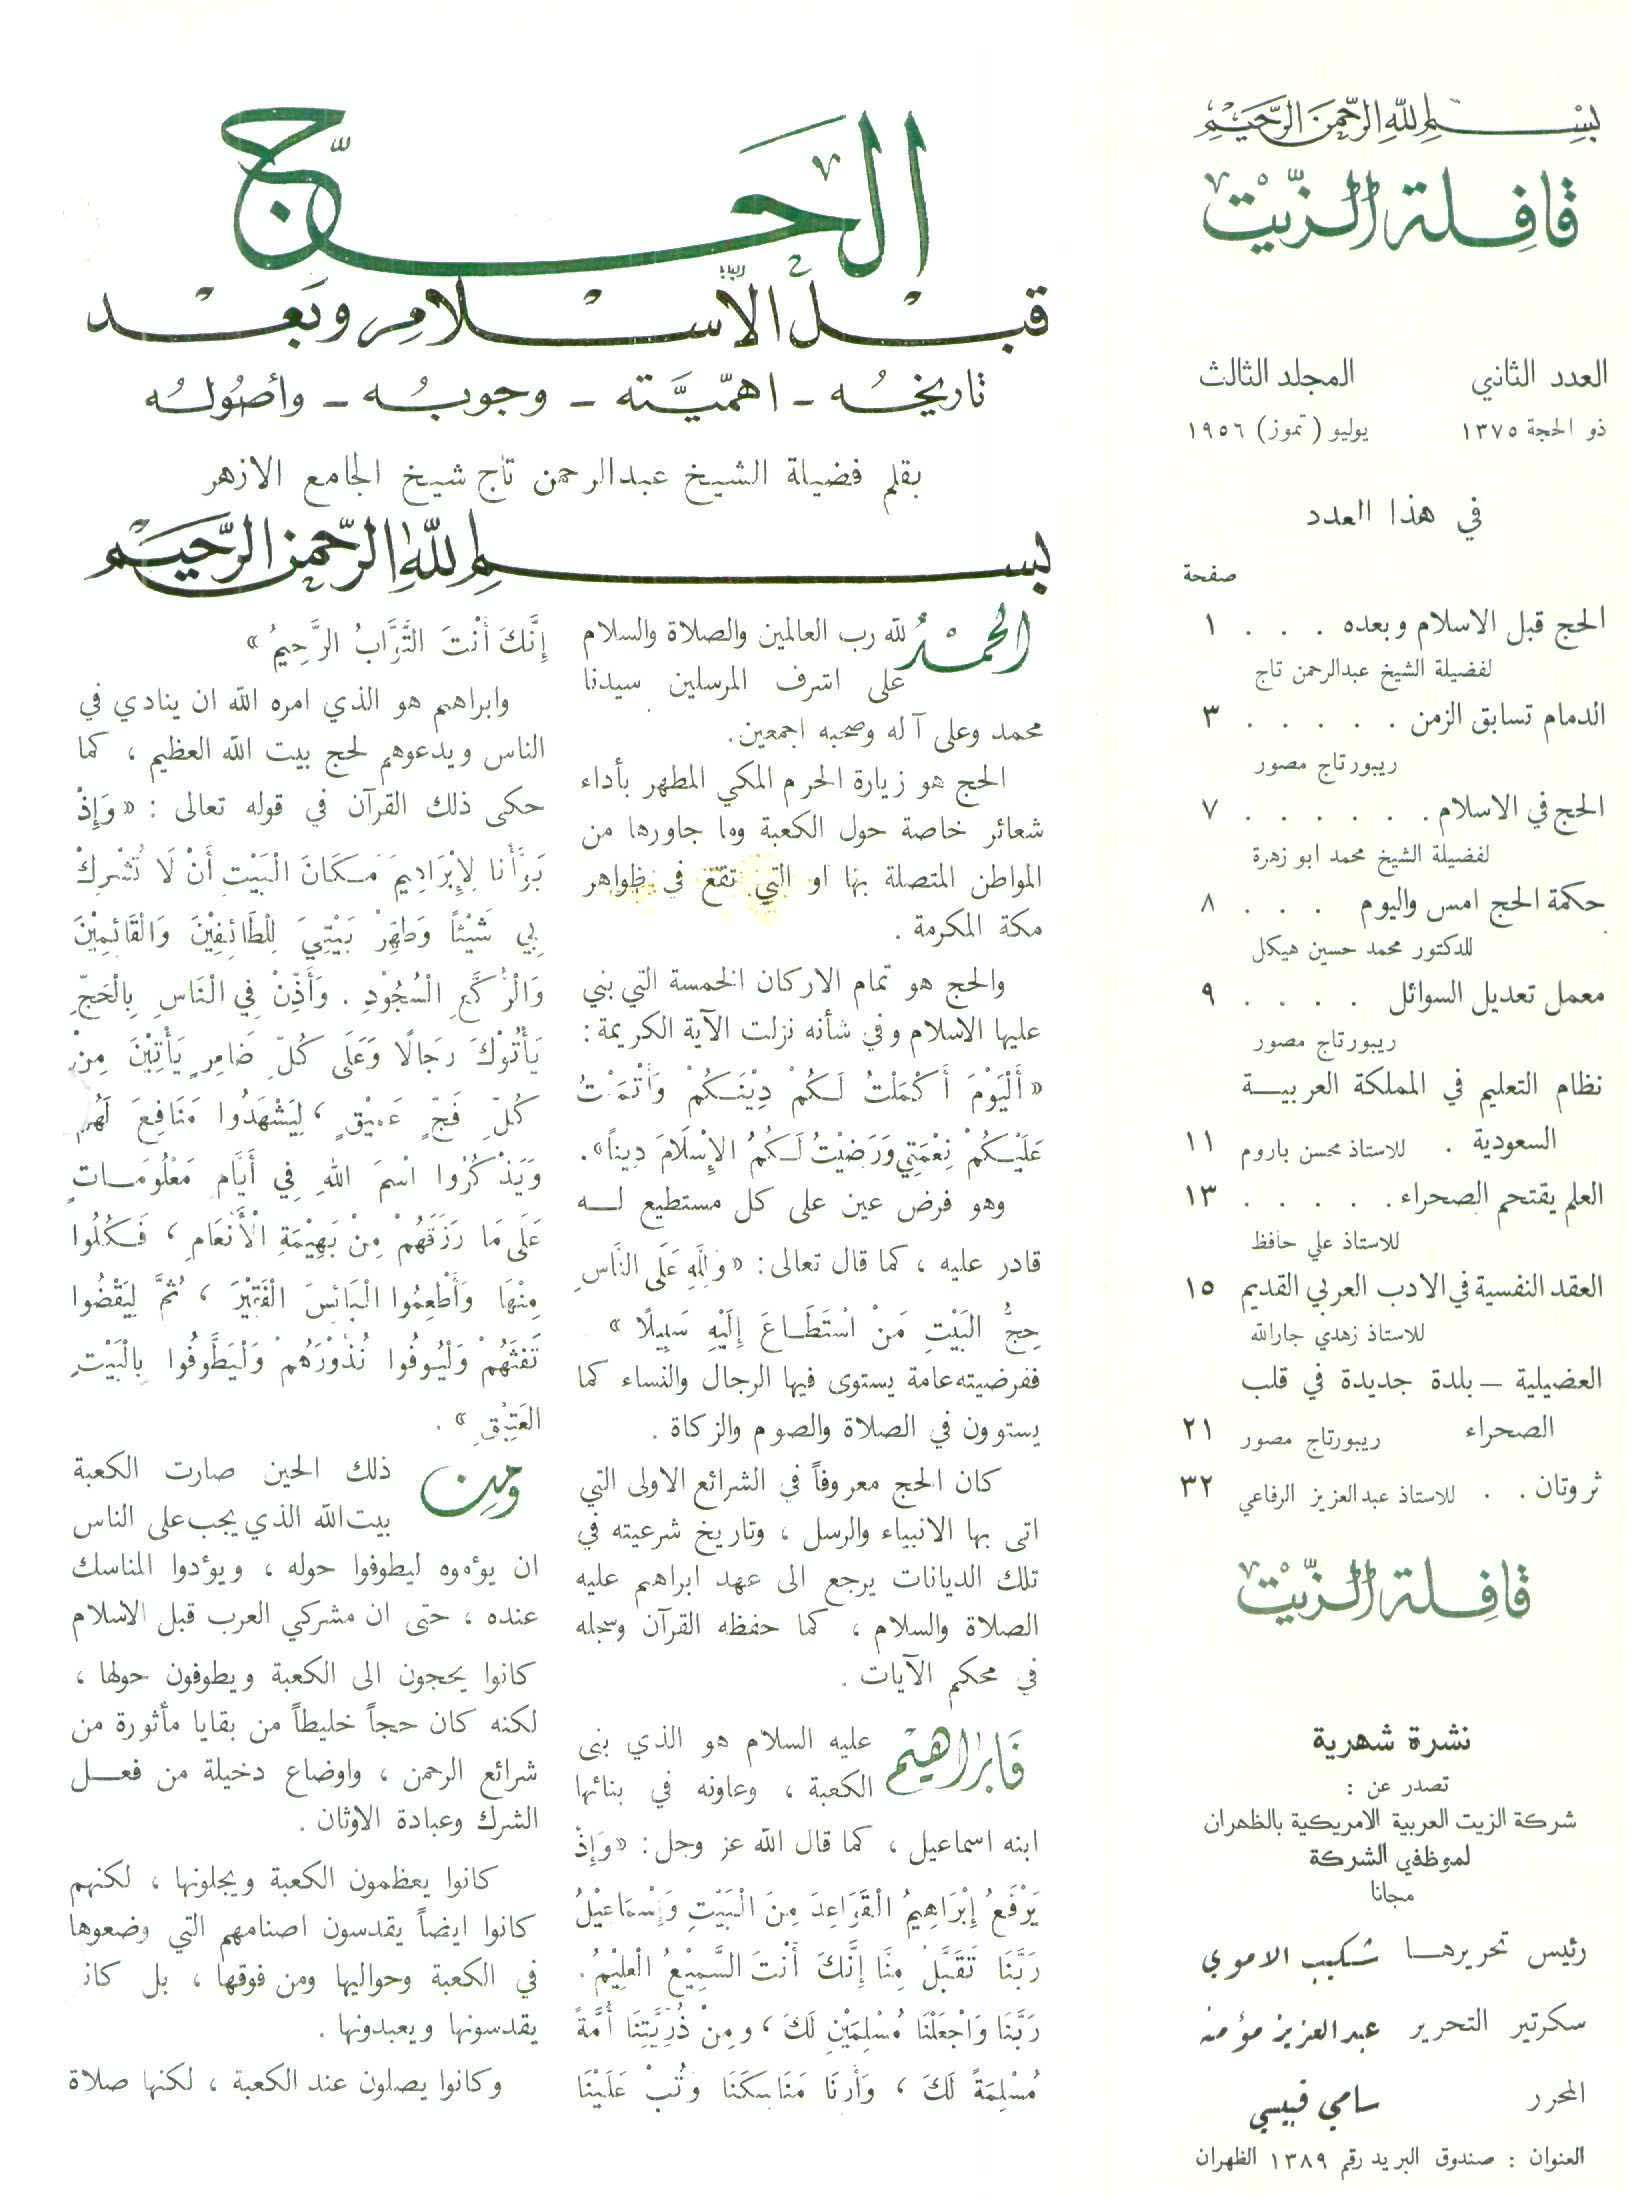 بسم الله الرحمن الرحيم
قافلة الزيت
العدد الثاني المجلد الثالث
ذو الحجة ١٣٧٥ يوليو ( تموز ) ١٩٥٦
في هذا العدد
صفحة
الحج قبل الاسلام وبعده . . . ١
لفضيلة الشيخ عبدالرحمن تاج
الدمام تسابق الزمن . . . . . ٣
ريبورتاج مصور
الحج في الاسلام . . . . . . ٧
لفضيلة الشيخ محمد ابو زهرة
حكمة الحج امس واليوم . . . ٨
للدكتور محمد حسين هيكل
معمل تعديل السوائل . . . . ٩
ريبورتاج مصور
نظام التعليم في المملكة العربيــة
السعودية . للاستاذ محسن باروم ١١
العلم يقتحم الصحراء . . . . . ١٣
للاستاذ علي حافظ
العقد النفسية في الادب العربي القديم ١٥
للاستاذ زهدي جارالله
العضيلية – بلدة جديدة في قلب
الصحراء ريبورتاج مصور ٢١
ثروتان . . للاستاذ عبدالعزيز الرفاعي ٣٢
قافلة الزيت
نشرة شهرية
تصدر عن :
شركة الزيت العربية الامريكية بالظهران
لموظفي الشركة
مجانا
رئيس تحريرهــا شكيب الاموي
سكرتير التحرير عبدالعزيز مؤمنه
المحرر سامي قبيسي
العنوان : صندوق البريد رقم ١٣٨٩ الظهران
الحَجّ
قبْل الاِسْلام وبَعْد
تاريخُه - اهمّيَّته - وجوبُه - وأصُولُه
بقلم فضيلة الشيخ عبدالرحمن تاج شيخ الجامع الازهر
بسم الله الرحمن الرحيم
الحمْدُ لله رب العالمين والصلاة والسلام
على اشرف المرسلين سيدنا
محمد وعلى آله وصحبه اجمعين.
الحج هو زيارة الحرم المكي المطهر بأداء
شعائر خاصة حول الكعبة وما جاورها من
المواطن المتصلة بها او التي تقع في ظواهر
مكة المكرمة .
والحج هو تمام الاركان الخمسة التي بني
عليها الاسلام وفي شأنه نزلت الآية الكريمة:
« أَلْيَوْمَ أَكْمَلْتُ لَكُمْ دِيْنَكُمْ وَأَتْمَمْتُ
عَلَيْكُمْ نِعْمَتِي وَرَضِيْتُ لَكُمُ الإِسْلَامَ دِيناً».
وهو فرض عين على كل مستطيع لــه
قادر عليه ، كما قال تعالى: « وَلِلّهِ عَلَى النَّاسِ
حِجُّ البَيْتِ مَنْ اسْتَطَـاعَ إِلَيْهِ سَبِيلًا »
ففرضيته عامة يستوى فيها الرجال والنساء كما
يستوون في الصلاة والصوم والزكاة .
كان الحج معروفاً في الشرائع الاولى التي
اتى بها الانبياء والرسل ، وتاريخ شرعيته في
تلك الديانات يرجع الى عهد ابراهيم عليه
الصلاة والسلام ، كما حفظه القرآن وسجله
في محكم الآيات .
فَابراهيْم عليه السلام هو الذي بنى
الكعبة ، وعاونه في بنائها
ابنه اسماعيل ، كما قال الله عز وجل: «وَإِذْ
يَرْفَعُ إِبْرَاهِيمُ الْقَوَاعِدَ مِنَ الْبَيْتِ وَإِسْمَاعِيْلُ
رَبَّنَا تَقَبَّلْ مِنَّا إِنَّكَ أَنْتَ السَّمِيْعُ الْعَلِيْمُ.
رَبَّنَا وَاجْعَلْنَا مُسْلِمَيْنِ لَكَ ، ومِنْ ذُرِّيَّتِنَا أُمَّةً
مُسْلِمَةً لَكَ ، وَأَرِنَا مَنَاسِكَنَا وَتُبْ عَلَيْنَا
إِنَّكَ أَنْتَ التَّوَّابُ الرَّحِيمُ »
وابراهيم هو الذي امره الله ان ينادي في
الناس ويدعوهم لحج بيت الله العظيم ، كما
حكى ذلك القرآن في قوله تعالى : « وَإِذْ
بَوَّأْنا لِإِبْرَاهِيمَ مَكَانَ الْبَيْتِ أَنْ لَا تُشْرِكْ
بِي شَيْئاً وَطَهِّرْ بَيْتِيَ لِلْطَائِفِيْنَ وَالْقَائِمِيْنَ
وَالْرُّكَّعِ الْسُجُوْدِ . وَأَذِّنْ فِي الْنَاسِ بِالْحَجِّ
يَأْتُوْكَ رِجَالًا وَعَلَى كُلِّ ضَامِرٍ يَأْتِيْنَ مِنْ
كُلِّ فَجٍّ عَمِيْقٍ ، لِيَشْهَدُوا مَنَافِعَ لَهُمْ
وَيَذْكُرُوا اسْمَ اللهِ فِي أَيَّامٍ مَعْلُومَـاتٍ
عَلَى مَا رَزَقَهُمْ مِنْ بَهِيْمَةِ الْأَنْعَامِ ، فَـكُلُوا
مِنْهَا وَأَطْعِمُوا الْبَائِسَ الْفَقِيْرَ ، ثُمَّ لِيَقْضُوا
تَفَثَهُمْ وَلْيُوفُوا نُذُوْرَهُمْ وَلْيَطَّوَّفُوا بِالْبَيْتِ
العَتِيْقِ » .
ومِن ذلك الحين صارت الكعبة
بيت الله الذي يجب على الناس
ان يؤموه ليطوفوا حوله ، ويؤدوا المناسك
عنده ، حتى ان مشركي العرب قبل الاسلام
كانوا يحجون الى الكعبة ويطوفون حولها ،
لكنه كان حجاً خليطاً من بقايا مأثورة من
شرائع الرحمن ، واوضاع دخيلة من فعــل
الشرك وعبادة الاوثان .
كانوا يعظمون الكعبة ويجلونها ، لكنهم
كانوا ايضاً يقدسون اصنامهم التي وضعوها
في الكعبة وحواليها ومن فوقها ، بل كانوا
يقدسونها ويعبدونها .
وكانوا يصلون عند الكعبة ، لكنها صلاة